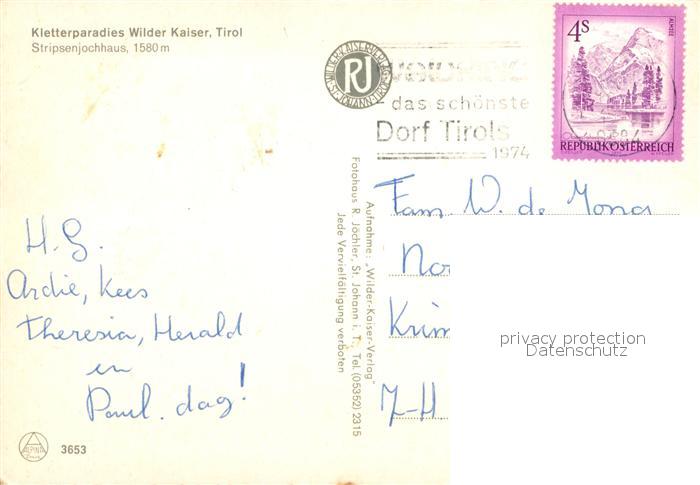 Kletterparadies Wilder Kaiser, Tirol
Stripsenjochhaus, 1580 m
WILDER-KAISERVERLAG
RJ
ST. JOHANN-TIROL
das schönste
Dorf Tirols
1974
4S
ALMSEE
REPUBLIK ÖSTERREICH
Aufnahme: „Wilder-Kaiser-Verlag"
Fotohaus R. Jöchler, St. Johann i. T., Tel. (05352) 2315
Jede Vervielfältigung verboten
H. G.
Ardie, Kees
Theresia, Herald
en
Paul. dag!
Fam. W. de Jong
No
Krim
Z-H
privacy protection
Datenschutz
ALPINA
3653